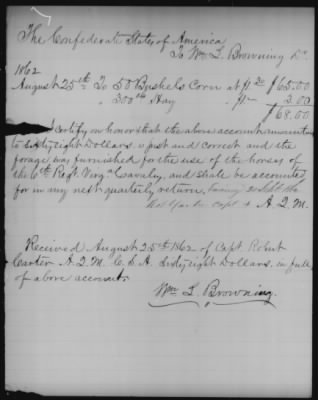 The Confederate States of America
To Wm. L. Browning Dr.
1862
August 25th To 50 Bushels Corn at $1 30 $65.00
" 300 lbs Hay " $1 — 3.00
$68.00
I certify on honor that the above account amounting
to Sixty eight Dollars is just and correct and the
forage was furnished for the use of the horses of
the 6th Regt. Virga Cavalry, and shall be accounted
for in my next quarterly return, ending 30 Sept the
Capt & A. Q. M.
Received August 25th 1862 of Capt. Robert
Carter A. Q. M. C. S. A. Sixty eight Dollars, in full,
of above accounts
Wm. L. Browning.